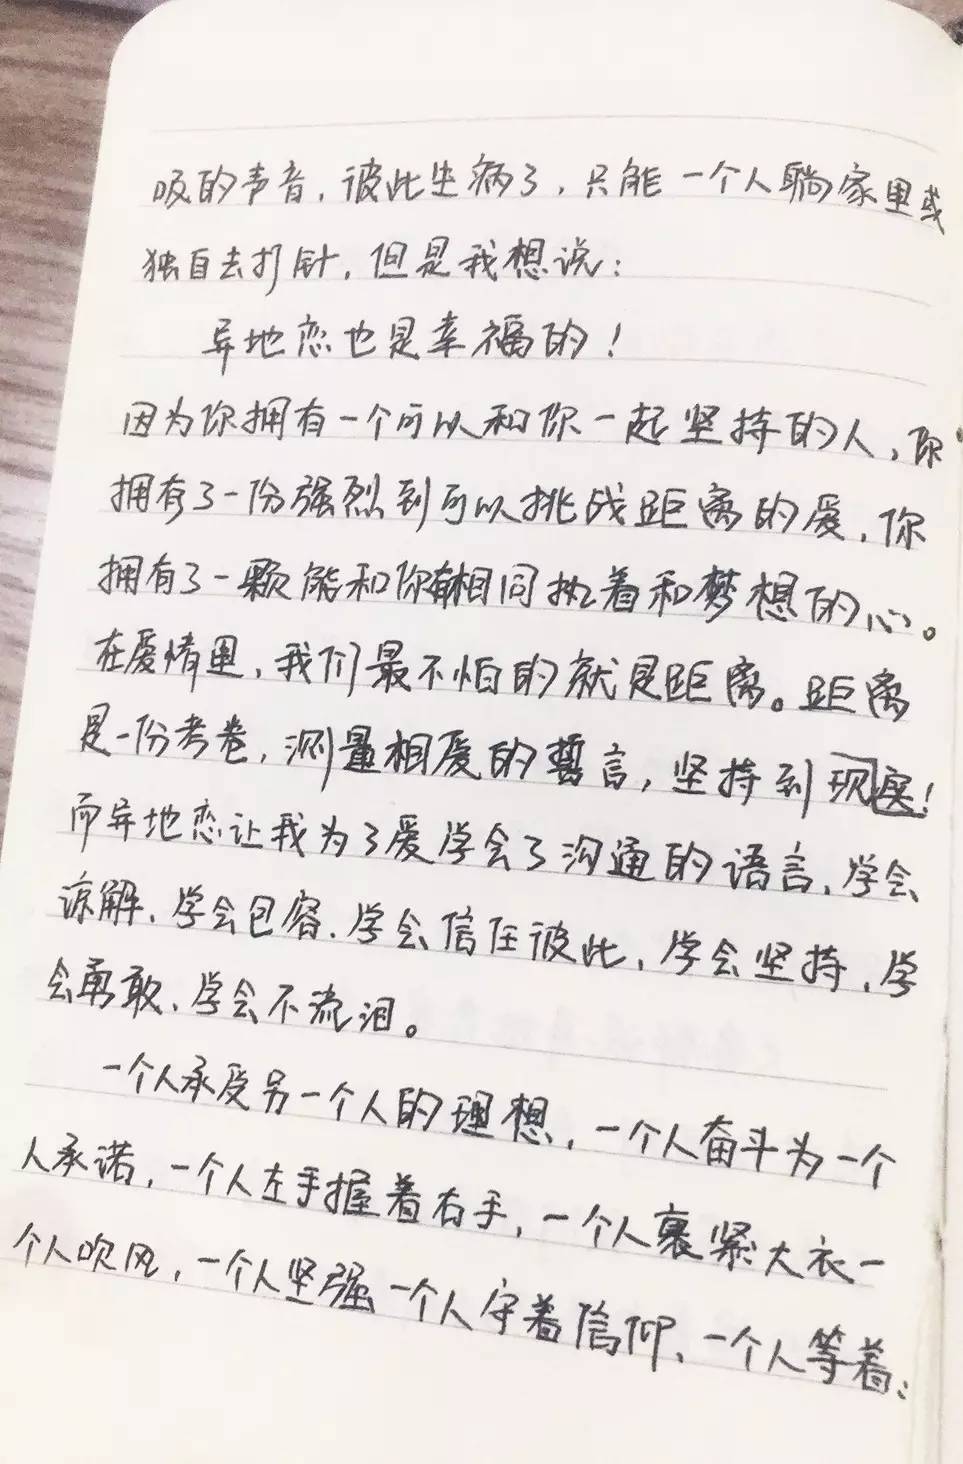 吸的声音，彼此生病了，只能一个人躺家里或
独自去打针，但是我想说：
异地恋也是幸福的！
因为你拥有一个可以和你一起坚持的人，你
拥有了一份强烈到可以挑战距离的爱，你
拥有了一颗能和你有相同执着和梦想的心。
在爱情里，我们最不怕的就是距离。距离
是一份考卷，测量相爱的誓言，坚持到现实！
而异地恋让我为了爱学会了沟通的语言，学会
谅解、学会包容、学会信任彼此，学会坚持，学
会勇敢、学会不流泪。
一个人承受另一个人的理想，一个人奋斗为一个
人承诺，一个人左手握着右手，一个人裹紧大衣一
个人吹风，一个人坚强一个人守着信仰、一个人等着：